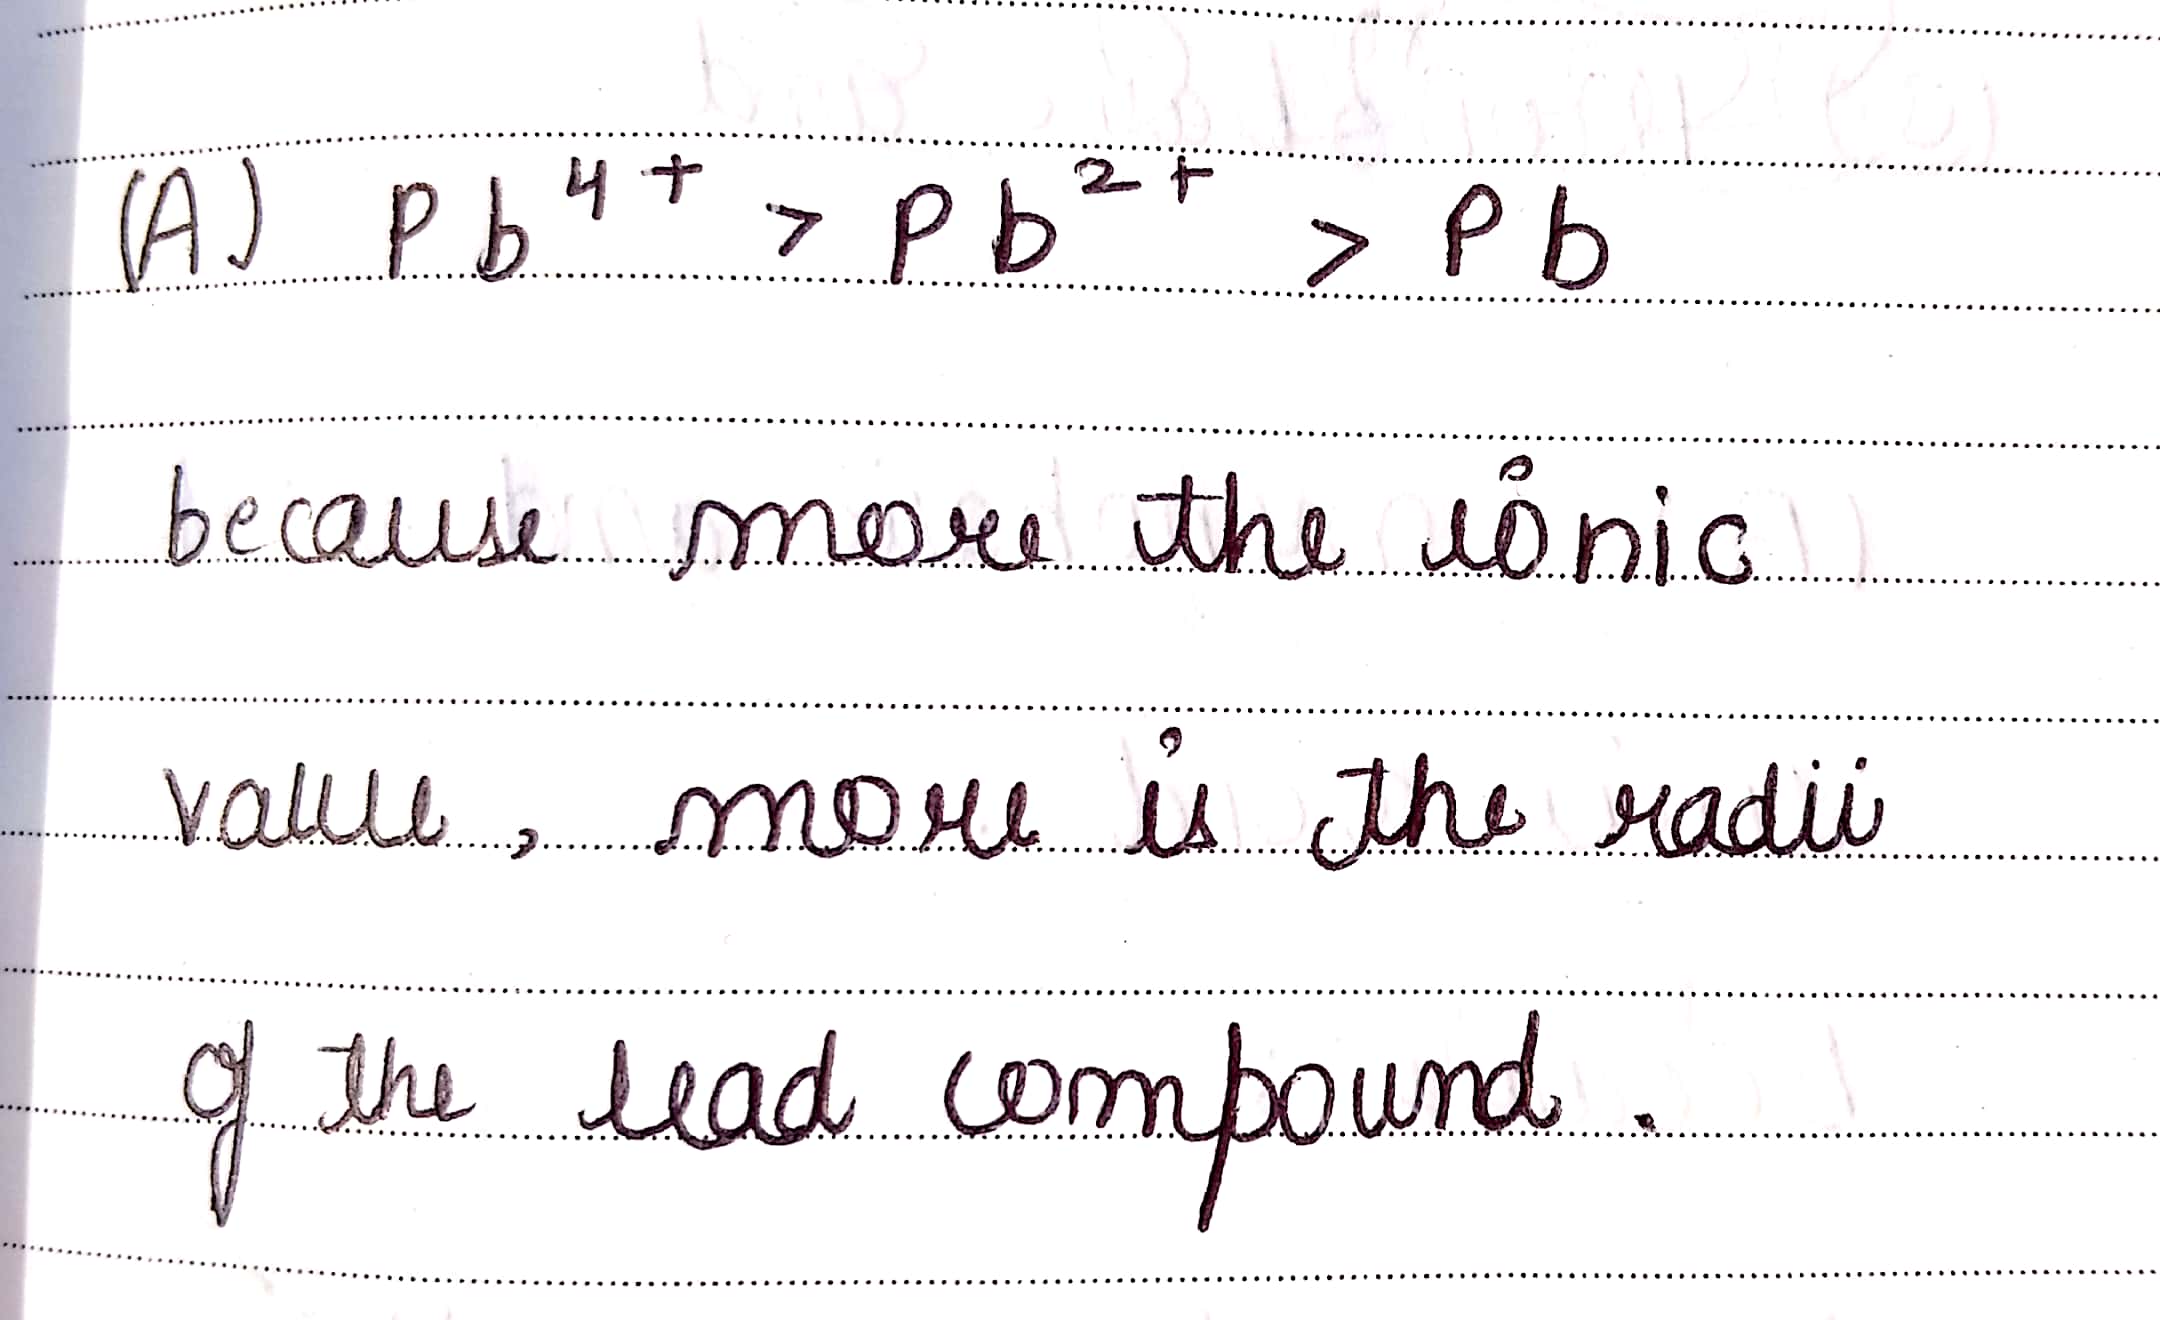 (A) Pb⁴⁺ > Pb²⁺ > Pb
because more the ionic
value, more is the radii
of the lead compound.